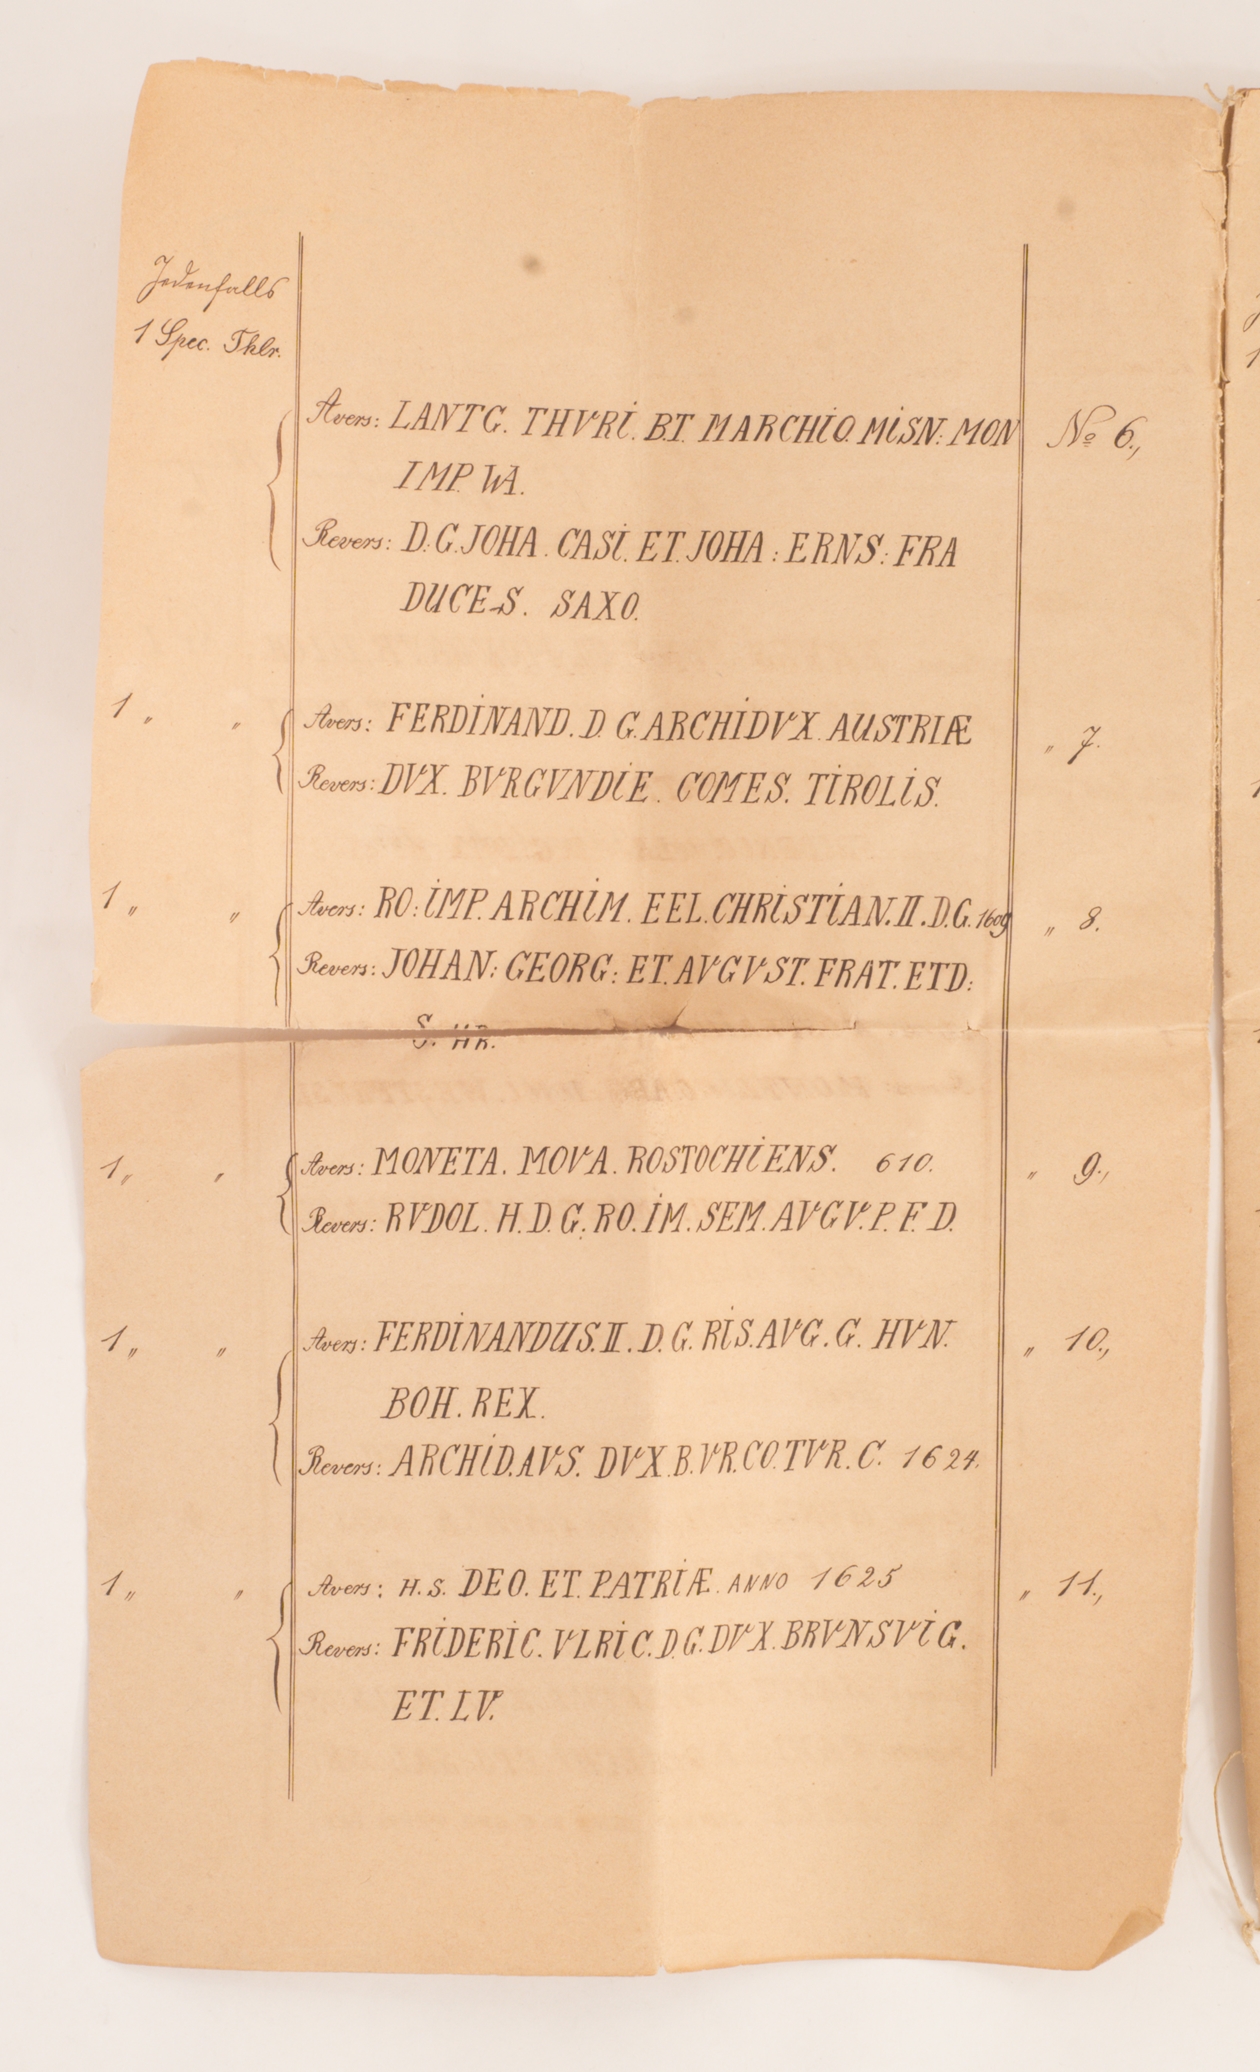 Jedenfalls
1 Spec. Thlr.
Avers: LANTG. THVRI. B.T. MARCHIO. MISN: MON № 6.,
IMP. WA.
Revers: D: G. JOHA. CASI. ET. JOHA: ERNS: FRA
DUCE-S. SAXO.
1 „ „ Avers: FERDINAND. D. G. ARCHIDVX. AUSTRIÆ „ 7.
Revers: DVX. BVRGVNDIE. COMES. TIROLIS.
1 „ „ Avers: RO: IMP. ARCHIM. EEL. CHRISTIAN. II. D.G. 1609 „ 8.
Revers: JOHAN: GEORG: ET. AVGVST. FRAT. ETD:
S. HR.
1 „ „ Avers: MONETA. MOVA. ROSTOCHIENS. 610. „ 9.,
Revers: RVDOL. H. D. G. RO. IM. SEM. AVGV. P. F. D.
1 „ „ Avers: FERDINANDUS. II. D. G. RIS. AVG. G. HVN. „ 10.,
BOH. REX.
Revers: ARCHID. AVS. DVX. B. VR. CO. TVR. C. 1624.
1 „ „ Avers: H. S. DEO. ET. PATRIÆ. ANNO 1625 „ 11.,
Revers: FRIDERIC. VLRIC. D. G. DVX. BRVNSVIG.
ET. LV.